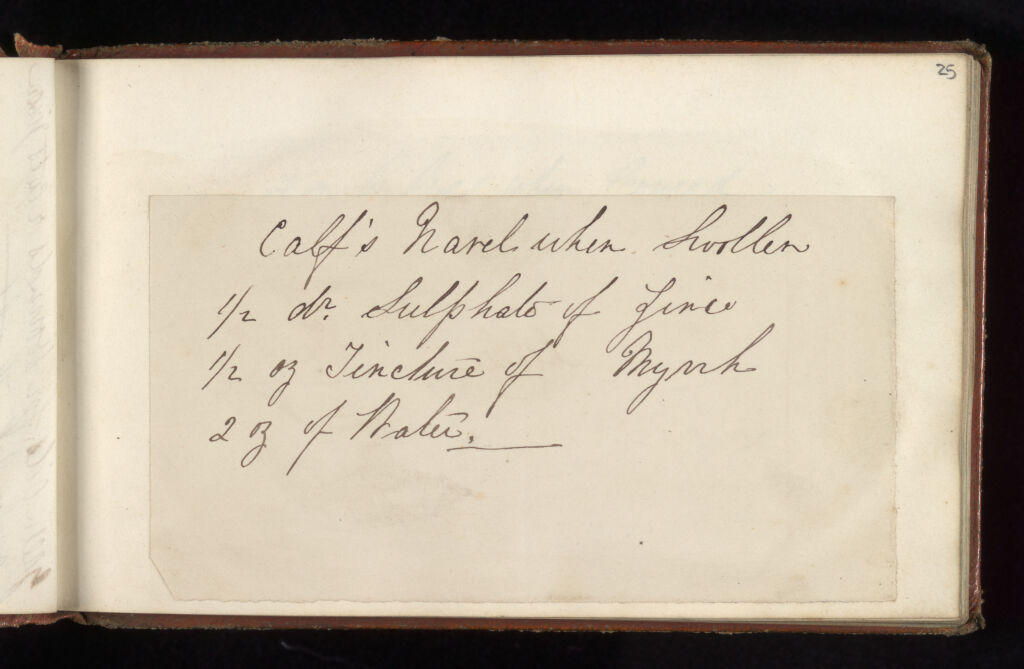 25
Calf's Navel when Swollen
1/2 dr. Sulphate of Zinc
1/2 oz Tincture of Myrrh
2 oz of Water.